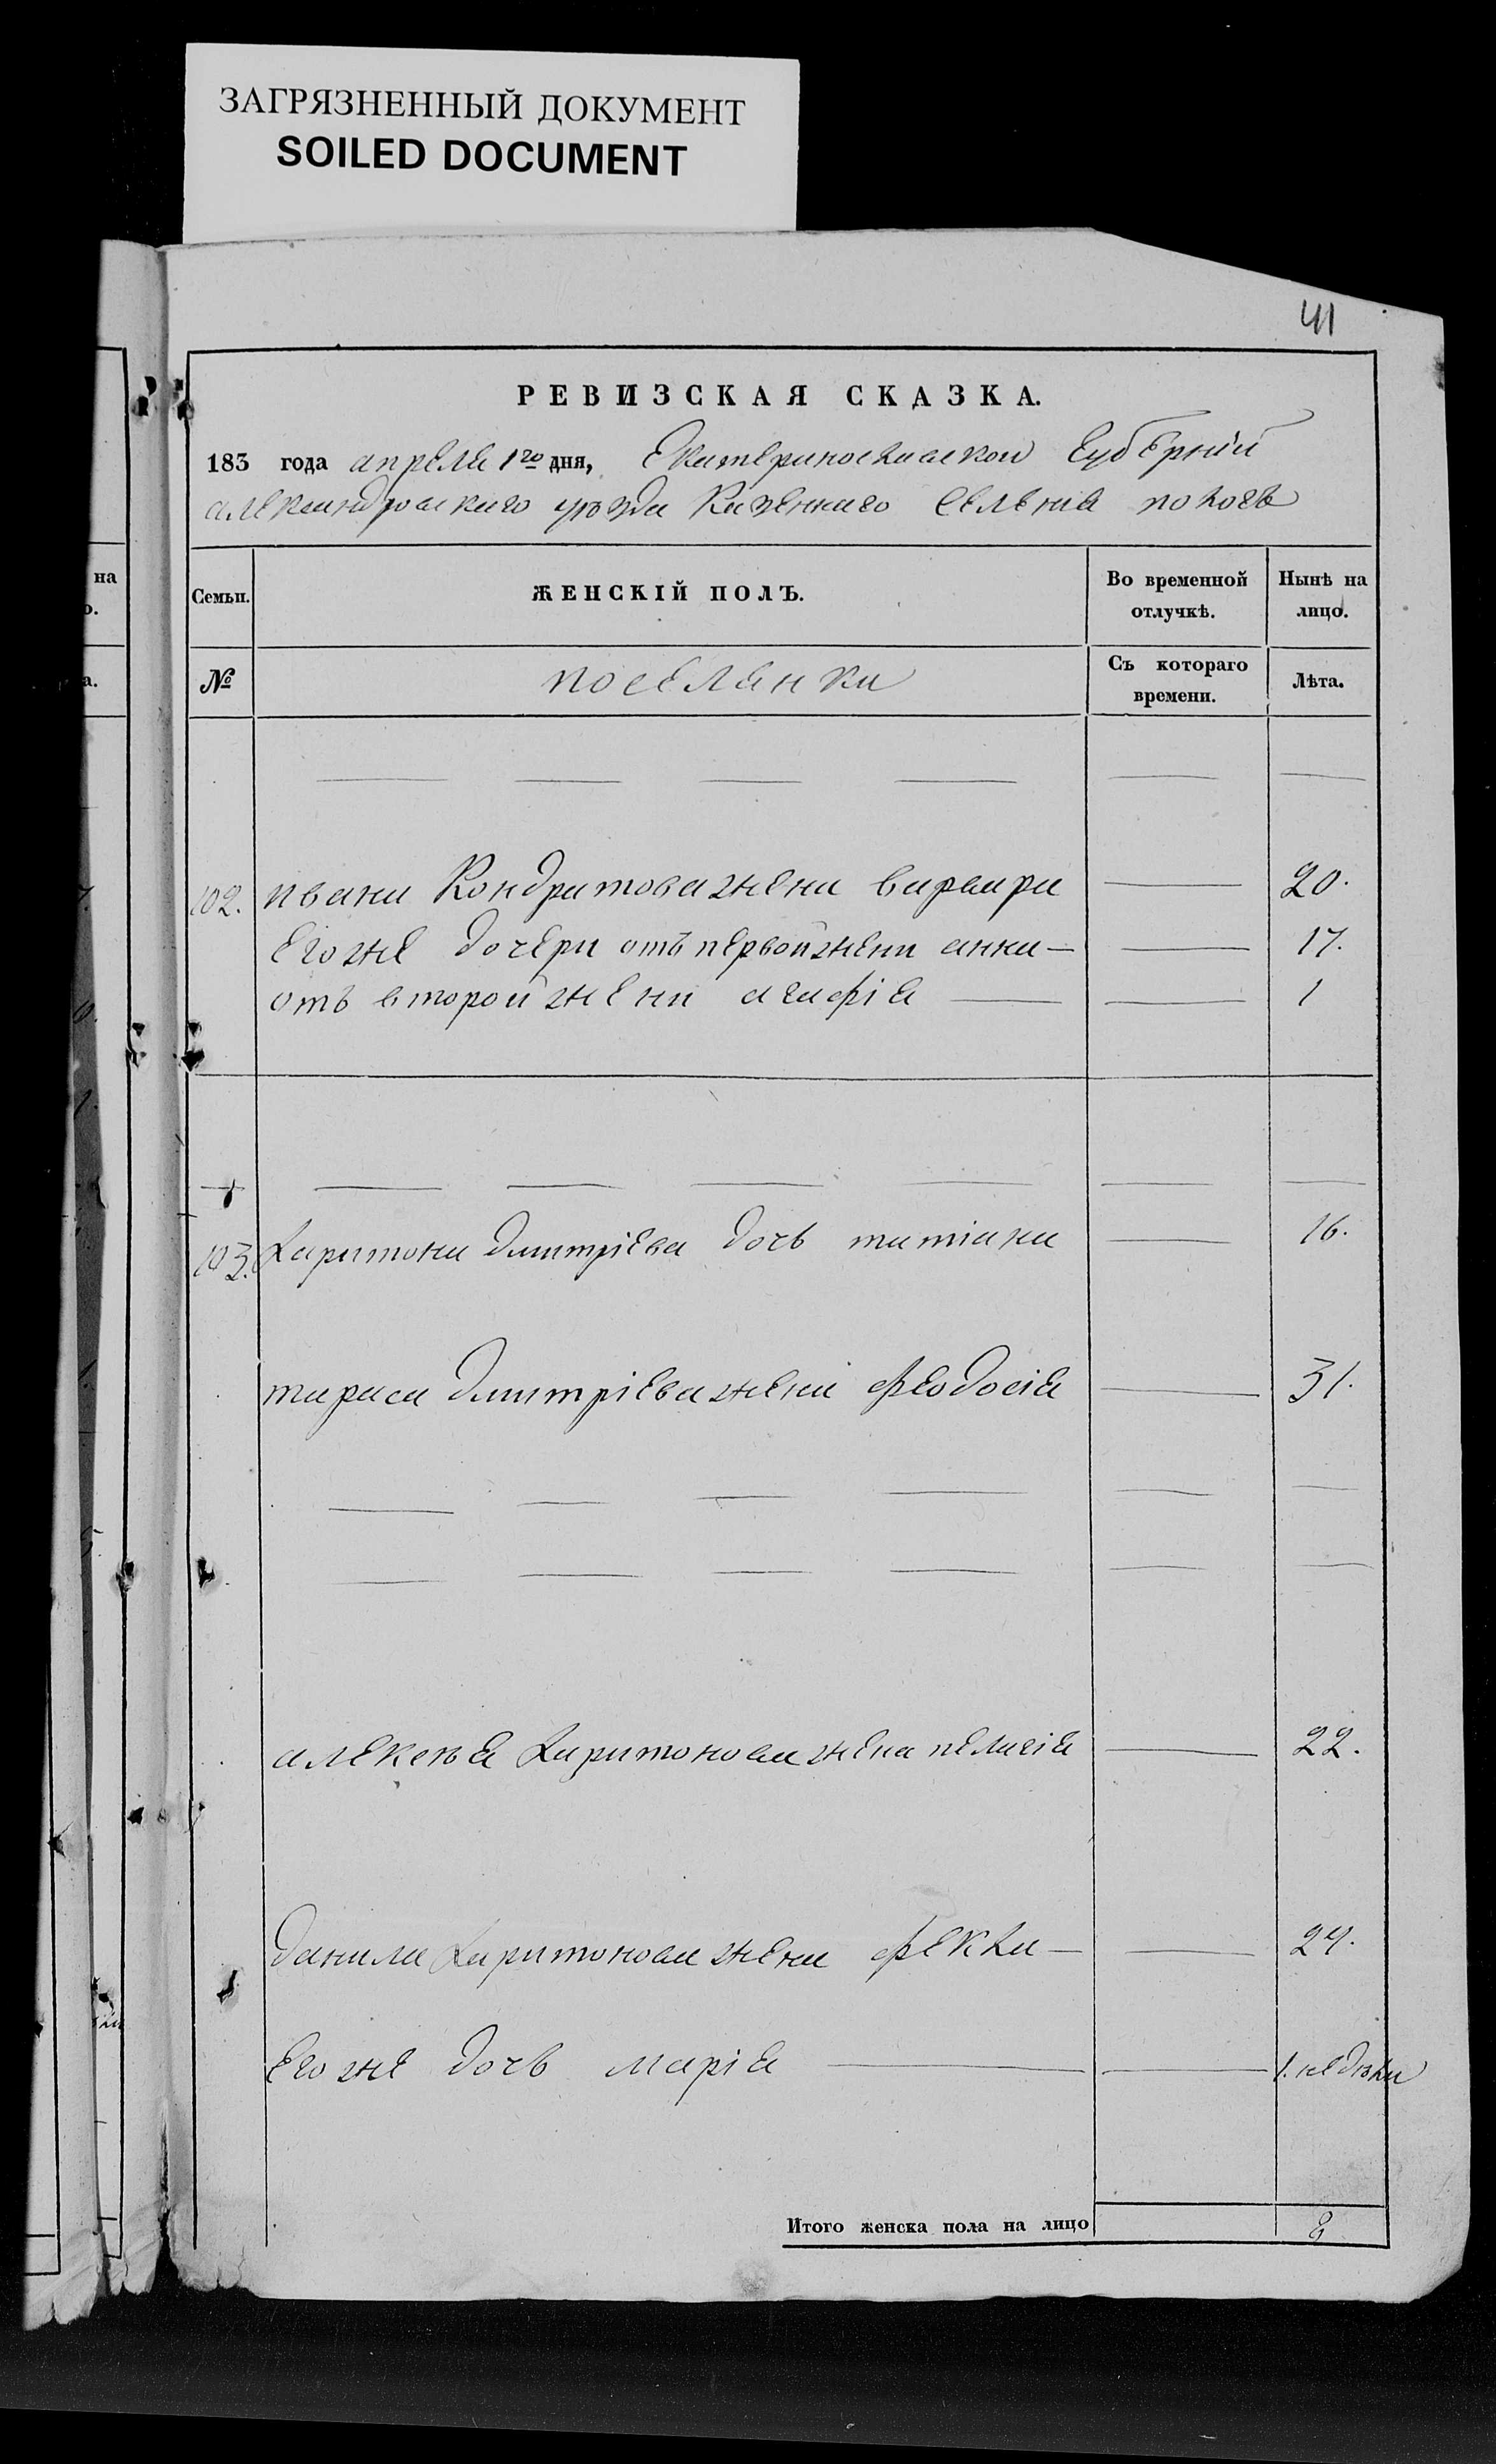 ЗАГРЯЗНЕННЫЙ ДОКУМЕНТ
SOILED DOCUMENT
41
РЕВИЗСКАЯ СКАЗКА.
183 года апреля 1го дня, Екатеринославской Губѣрніи
александровскаго уѣзда Казеннаго Селенія
Семьи. ЖЕНСКІЙ ПОЛЪ. Во временной отлучкѣ. Нынѣ на лицо.
№ поселянки Съ котораго времени. Лѣта.
102. ивана Кондратова жена варвара 20.
Его же дочери отъ первой жени анна 17.
отъ второй жени агафія 1
103. Харитона дмитріева дочь татіана 16.
тараса дмитріева жена феодосія 31.
алексѣя Харитонова жена пелагія 22.
данила Харитонова жена фекла 24.
Его же дочь марія 1. недѣли
Итого женска пола на лицо 8
на
о.
а.